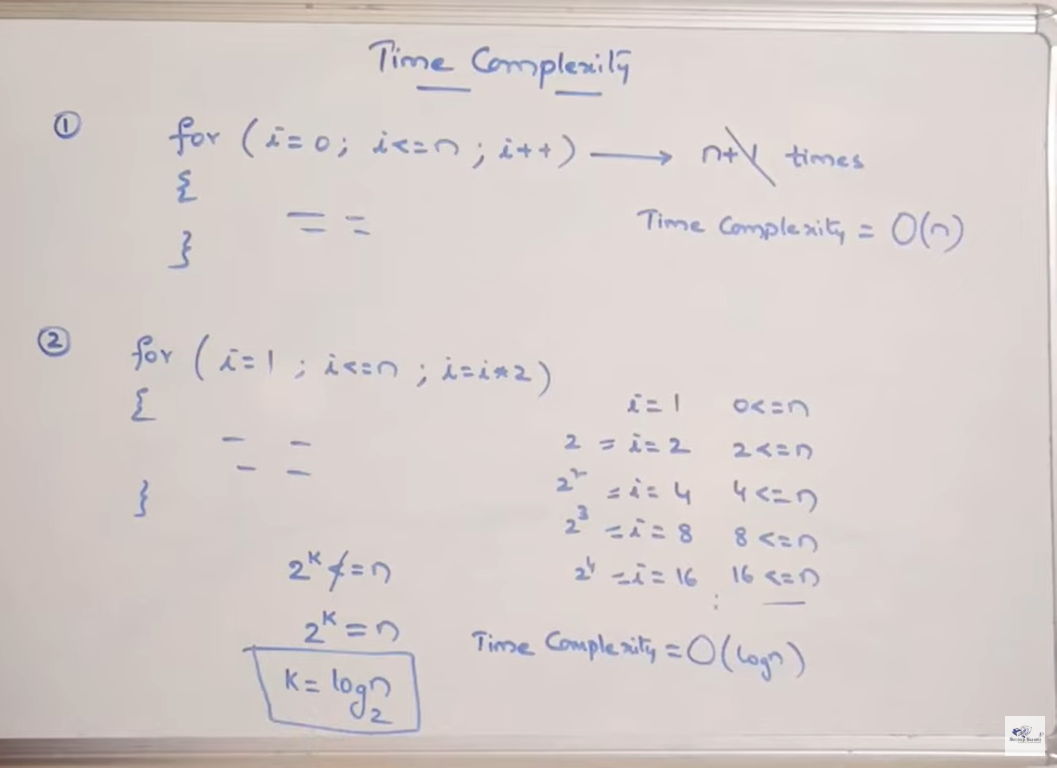 Time Complexity
① for (i=0; i<=n; i++) ⟶ n+1 times
{
}
Time Complexity = O(n)
② for (i=1; i<=n; i=i*2)
{
}
i=1 0<=n
2 = i=2 2<=n
2² = i=4 4<=n
2³ = i=8 8<=n
2⁴ = i=16 16<=n
⋮
2ᴷ ≮= n
2ᴷ = n
K = log₂n
Time Complexity = O(logn)